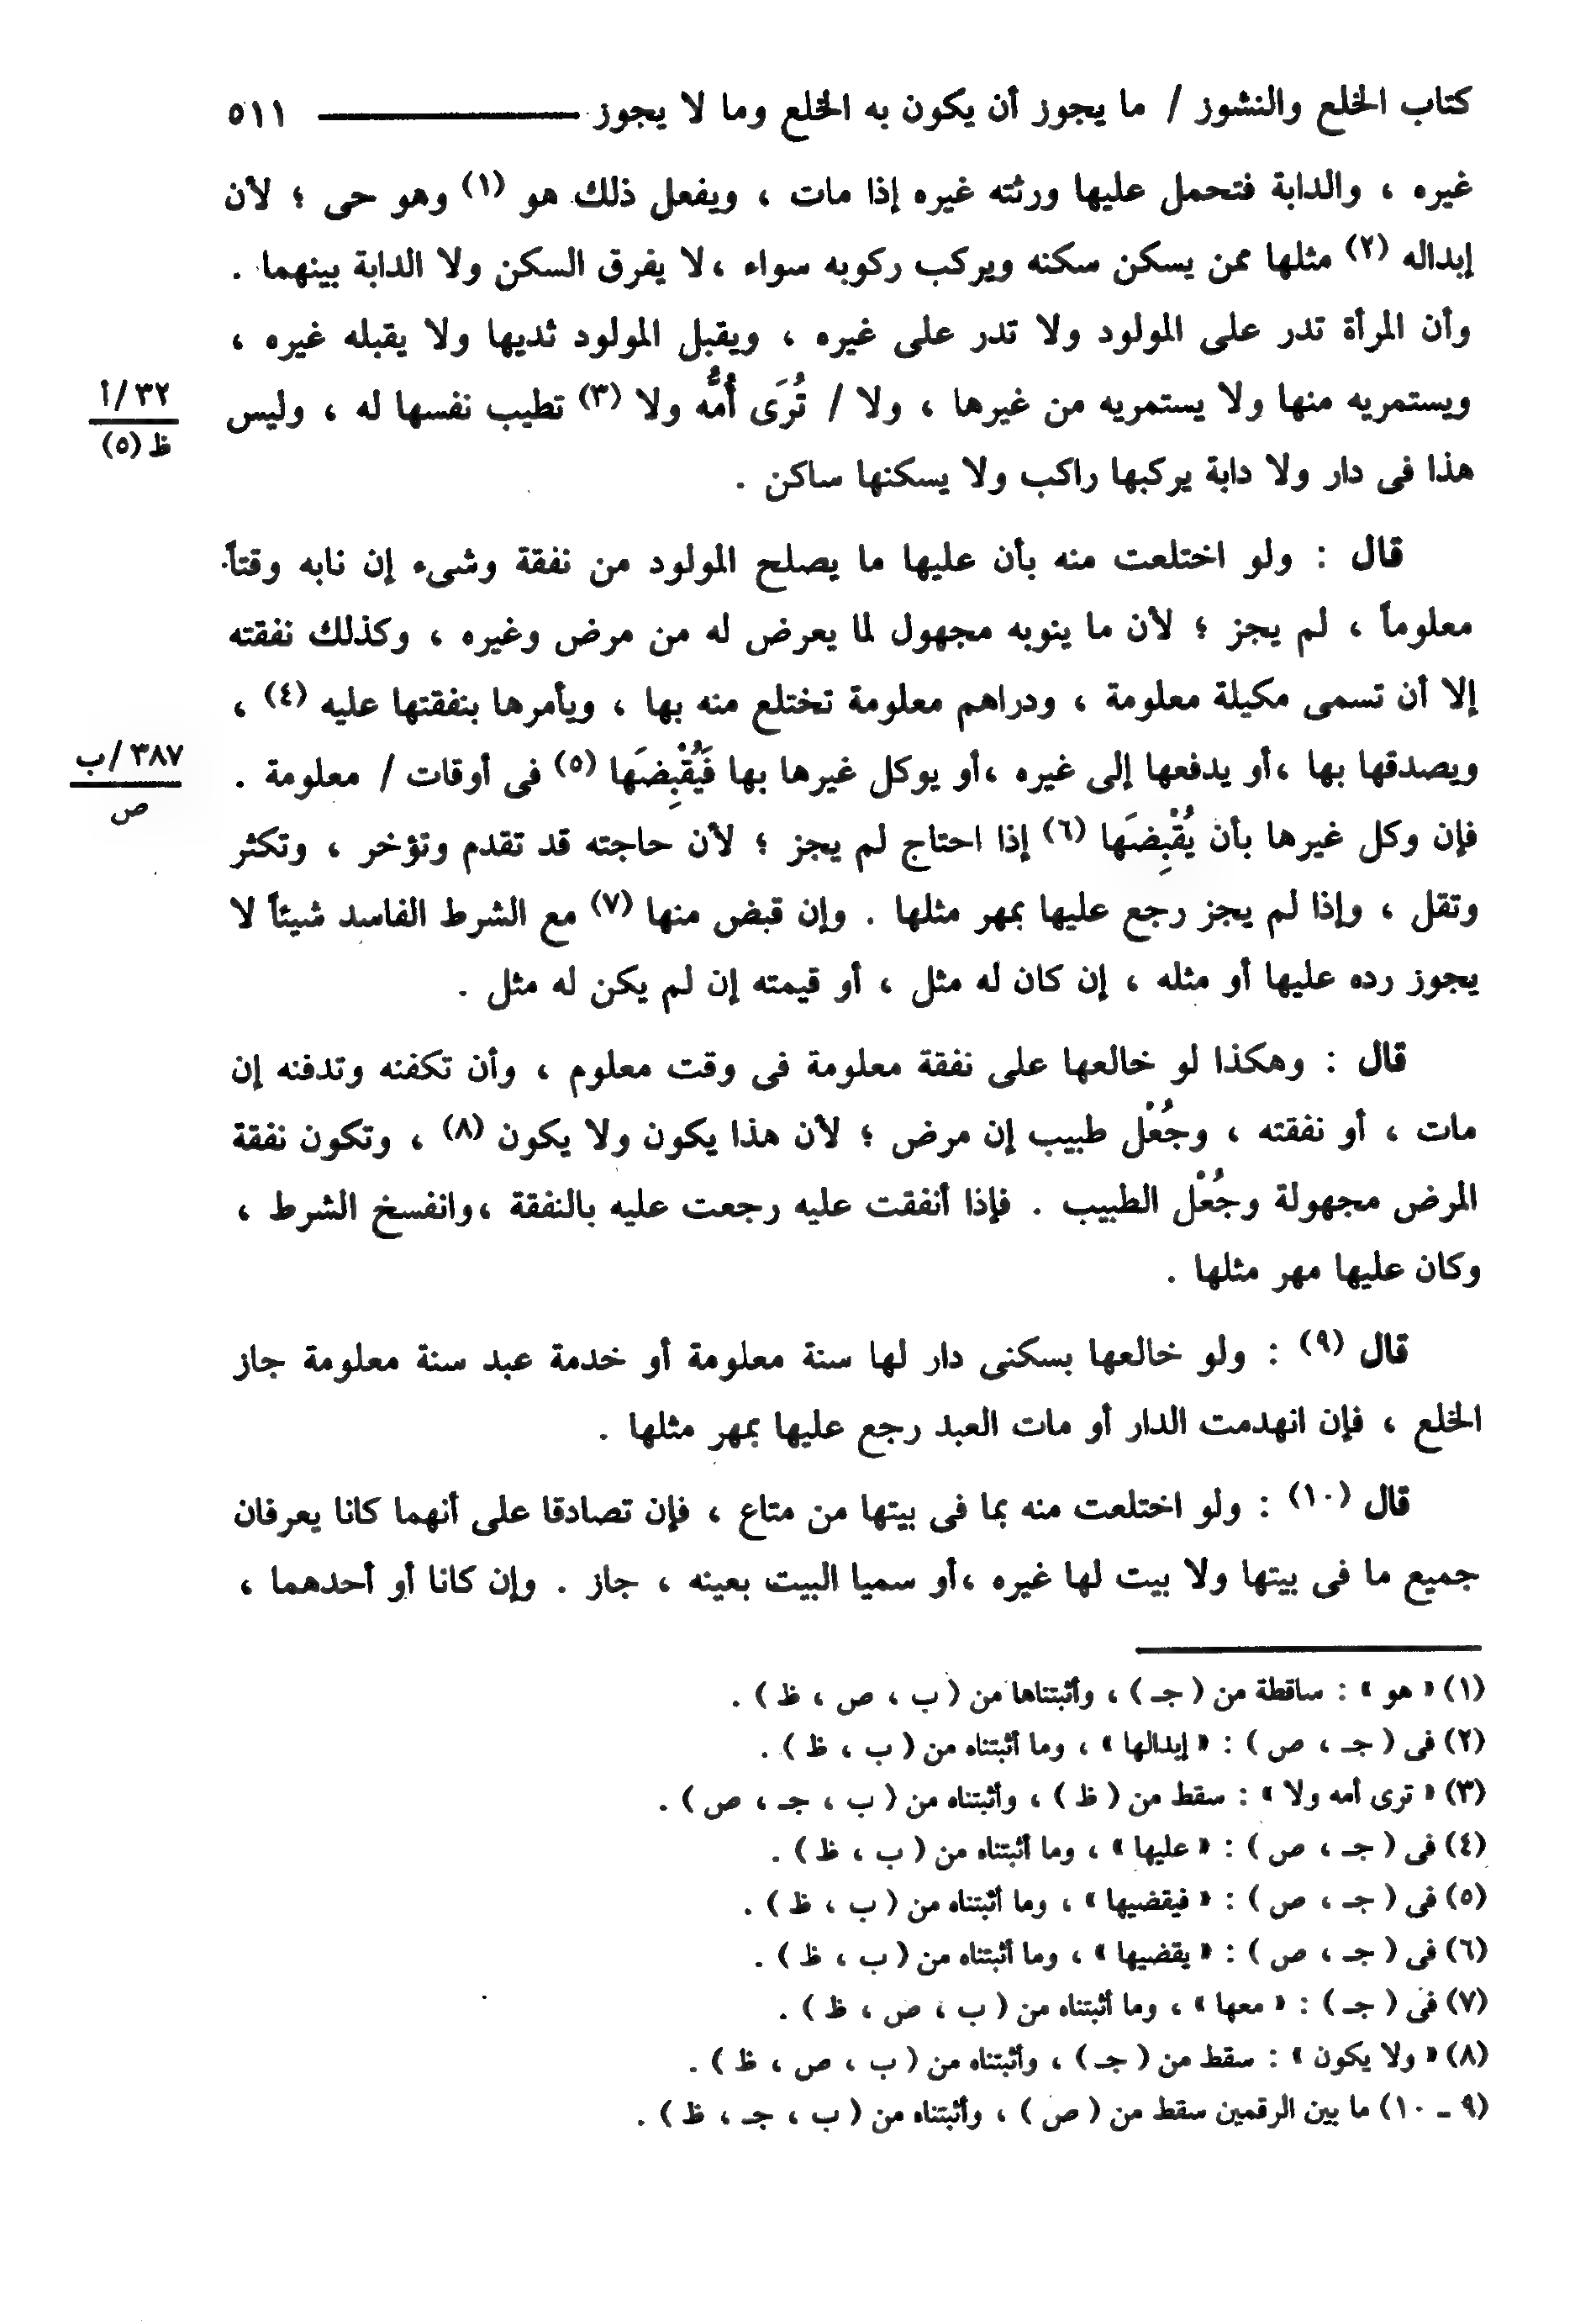 كتاب الخلع والنشوز / ما يجوز أن يكون به الخلع وما لا يجوز ٥١١
غيره ، والدابة فتحمل عليها ورثته غيره إذا مات ، ويفعل ذلك هو (١) وهو حى ؛ لأن
إبداله (٢) مثلها ممن يسكن سكنه ويركب ركوبه سواء ،لا يفرق السكن ولا الدابة بينهما .
وأن المرأة تدر على المولود ولا تدر على غيره ، ويقبل المولود ثديها ولا يقبله غيره ،
ويستمريه منها ولا يستمريه من غيرها ، ولا / تُرَى أُمُّه ولا (٣) تطيب نفسها له ، وليس
٣٢/أ
ظ (٥)
هذا فى دار ولا دابة يركبها راكب ولا يسكنها ساكن .
قال : ولو اختلعت منه بأن عليها ما يصلح المولود من نفقة وشىء إن نابه وقتاً
معلوماً ، لم يجز ؛ لأن ما ينوبه مجهول لما يعرض له من مرض وغيره ، وكذلك نفقته
إلا أن تسمى مكيلة معلومة ، ودراهم معلومة تختلع منه بها ، ويأمرها بنفقتها عليه (٤) ،
ويصدقها بها ،أو يدفعها إلى غيره ،أو يوكل غيرها بها فَيُقْبِضَها (٥) فى أوقات / معلومة .
٣٨٧/ب
ص
فإن وكل غيرها بأن يُقْبِضَها (٦) إذا احتاج لم يجز ؛ لأن حاجته قد تقدم وتؤخر ، وتكثر
وتقل ، وإذا لم يجز رجع عليها بمهر مثلها . وإن قبض منها (٧) مع الشرط الفاسد شيئاً لا
يجوز رده عليها أو مثله ، إن كان له مثل ، أو قيمته إن لم يكن له مثل .
قال : وهكذا لو خالعها على نفقة معلومة فى وقت معلوم ، وأن تكفنه وتدفنه إن
مات ، أو نفقته ، وجُعْل طبيب إن مرض ؛ لأن هذا يكون ولا يكون (٨) ، وتكون نفقة
المرض مجهولة وجُعْل الطبيب . فإذا أنفقت عليه رجعت عليه بالنفقة ،وانفسخ الشرط ،
وكان عليها مهر مثلها .
قال (٩) : ولو خالعها بسكنى دار لها سنة معلومة أو خدمة عبد سنة معلومة جاز
الخلع ، فإن انهدمت الدار أو مات العبد رجع عليها بمهر مثلها .
قال (١٠) : ولو اختلعت منه بما فى بيتها من متاع ، فإن تصادقا على أنهما كانا يعرفان
جميع ما فى بيتها ولا بيت لها غيره ،أو سميا البيت بعينه ، جاز . وإن كانا أو أحدهما ،
(١) « هو » : ساقطة من ( جـ ) ، وأثبتناها من ( ب ، ص ، ظ ) .
(٢) فى ( جـ ، ص ) : « إبدالها » ، وما أثبتناه من ( ب ، ظ ) .
(٣) « ترى أمه ولا » : سقط من ( ظ ) ، وأثبتناه من ( ب ، جـ ، ص ) .
(٤) فى ( جـ ، ص ) : « عليها » ، وما أثبتناه من ( ب ، ظ ) .
(٥) فى ( جـ ، ص ) : « فيقضيها » ، وما أثبتناه من ( ب ، ظ ) .
(٦) فى ( جـ ، ص ) : « يقضيها » ، وما أثبتناه من ( ب ، ظ ) .
(٧) فى ( جـ ) : « معها » ، وما أثبتناه من ( ب ، ص ، ظ ) .
(٨) « ولا يكون » : سقط من ( جـ ) ، وأثبتناه من ( ب ، ص ، ظ ) .
(٩ ـ ١٠) ما بين الرقمين سقط من ( ص ) ، وأثبتناه من ( ب ، جـ ، ظ ) .